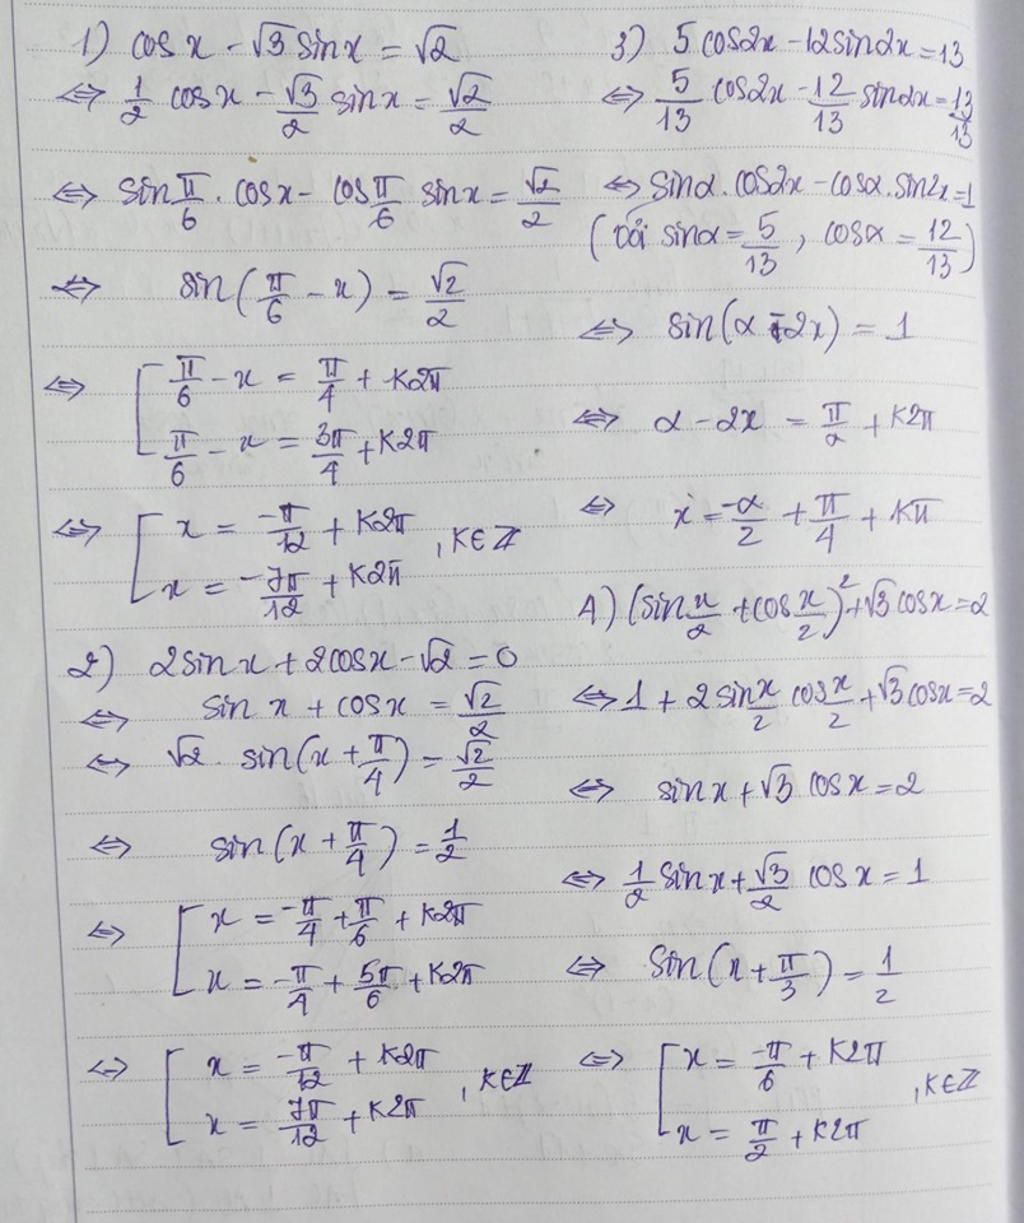 1) cos x - √3 sin x = √2
⇔ 1/2 cos x - √3/2 sin x = √2/2
⇔ sin π/6 . cos x - cos π/6 sin x = √2/2
⇔ sin(π/6 - x) = √2/2
⇔ [ π/6 - x = π/4 + k2π
π/6 - x = 3π/4 + k2π
⇔ [ x = -π/12 + k2π
x = -7π/12 + k2π , k∈Z
2) 2sin x + 2cos x - √2 = 0
⇔ sin x + cos x = √2/2
⇔ √2 . sin(x + π/4) = √2/2
⇔ sin(x + π/4) = 1/2
⇔ [ x = -π/4 + π/6 + k2π
x = -π/4 + 5π/6 + k2π
⇔ [ x = -π/12 + k2π
x = 7π/12 + k2π , k∈Z
3) 5cos2x - 12sin2x = 13
⇔ 5/13 cos2x - 12/13 sin2x = 13/13
⇔ sinα . cos2x - cosα . sin2x = 1
(với sinα = 5/13 , cosα = 12/13)
⇔ sin(α - 2x) = 1
⇔ α - 2x = π/2 + k2π
⇔ x = -α/2 + π/4 + kπ
4) (sin x/2 + cos x/2)² + √3 cos x = 2
⇔ 1 + 2 sin x/2 cos x/2 + √3 cos x = 2
⇔ sin x + √3 cos x = 2
⇔ 1/2 sin x + √3/2 cos x = 1
⇔ sin(x + π/3) = 1/2
⇔ [ x = -π/6 + k2π
x = π/2 + k2π , k∈Z